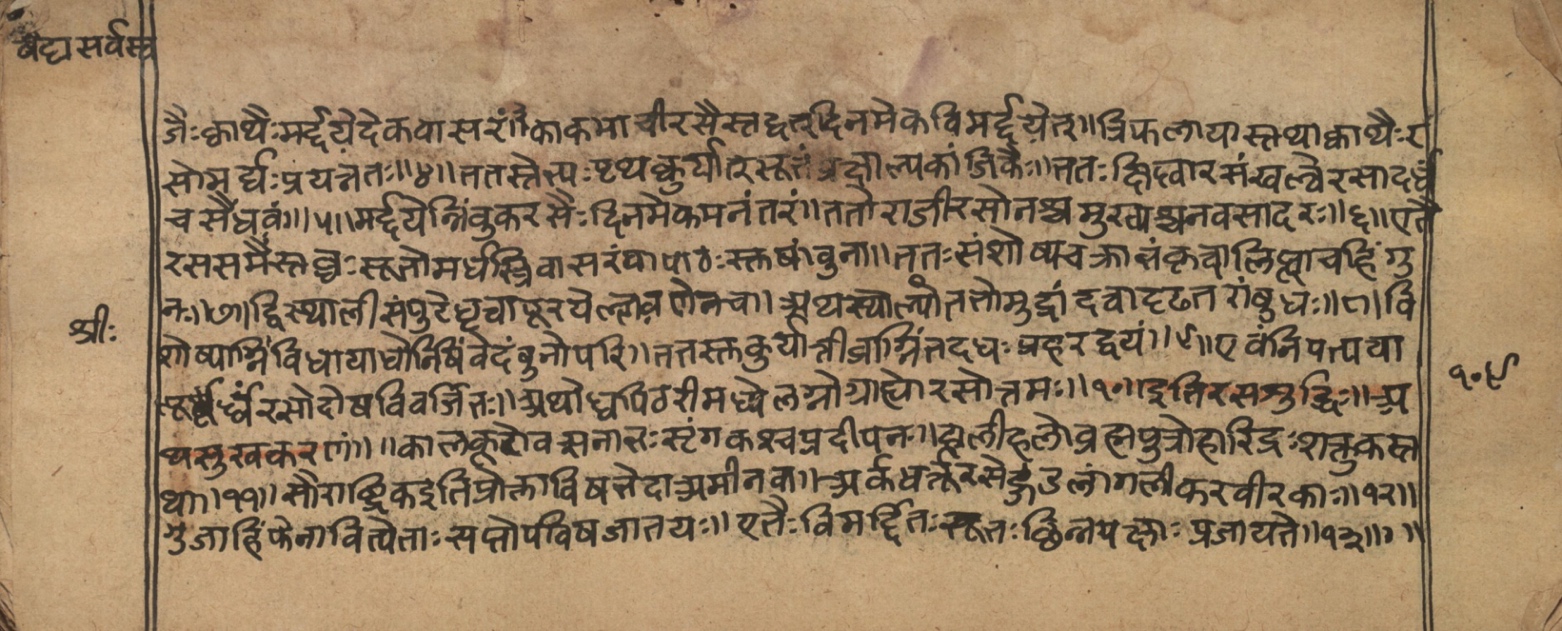 वैद्य सर्वस्व
जैः क्वाथैः मर्द्दयेदेकवासरं॥३ काकमाचीरसैस्तद्वत् दिनमेकं विमर्द्दयेत्॥ त्रिफलायास्तथा क्वाथैः र
सो मर्द्यः प्रयत्नतः॥४॥ ततस्तेभ्यः पृथक्कुर्यात् सूतं प्रक्षाल्य कांजिकैः॥ ततः क्षिप्त्वा रसं खल्वे रसादर्धं
च सैंधवं॥५॥ मर्द्दयेन्निंबुकरसैः दिनमेकमनंतरं॥ ततो राजी रसोनश्च मुख्यश्च नवसादरः॥६॥ एतै
रससमैस्तद्वत् सूतो मर्द्यस्त्रिवासरं
ततः संशोष्य चक्राभं कृत्वा लिप्त्वा च हिंगु
नः॥७॥ द्विस्थाली संपुटे धृत्वा पूरयेल्लवणेन च॥ अथ स्थाल्यां ततो मुद्रां दद्यादृढतरां बुधः॥८॥ वि
श्रीः
शोष्याग्निं विधायाधो निषिंचेदंबुनोपरि॥ ततस्तु कुर्यात्तीव्राग्निं तदधः प्रहरद्वयं॥९॥ एवं निपत्यया
१०९
र्ध्वं रसो दोषविवर्जितः॥ अथोर्ध्वपिठरीमध्ये लग्नो ग्राह्यो रसोत्तमः॥१०॥ इति रसशुद्धिः॥ अ
थ मुखकरणं॥ ॥कालकूटो वत्सनाभः सृंगकश्च प्रदीपनः॥ हालीहलो ब्रह्मपुत्रो हारिद्रः शक्तुकस्त
था॥११॥ सौराष्ट्रिक इति प्रोक्ता विषभेदा अमी नव॥ अर्कधत्तूरसेहुंड लांगलीकरवीरकाः॥१२॥
गुंजाहिफेनावित्येताः सप्तोपविषजातयः॥ एतैः विमर्द्दितः सूतः छिन्नपक्षः प्रजायते॥१३॥॥